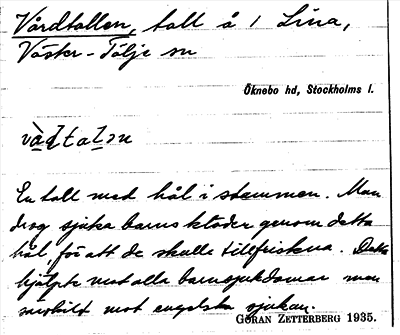 Vårdtallen, tall å 1 Lina,
Väster-Tälje sn
Öknebo hd, Stockholms l.
En tall med hål i stammen. Man
drog sjuka barns kläder genom detta
hål, för att de skulle tillfriskna. Detta
hjälpte mot alla barnsjukdomar men
särskilt mot engelska sjukan.
GÖRAN ZETTERBERG 1935.